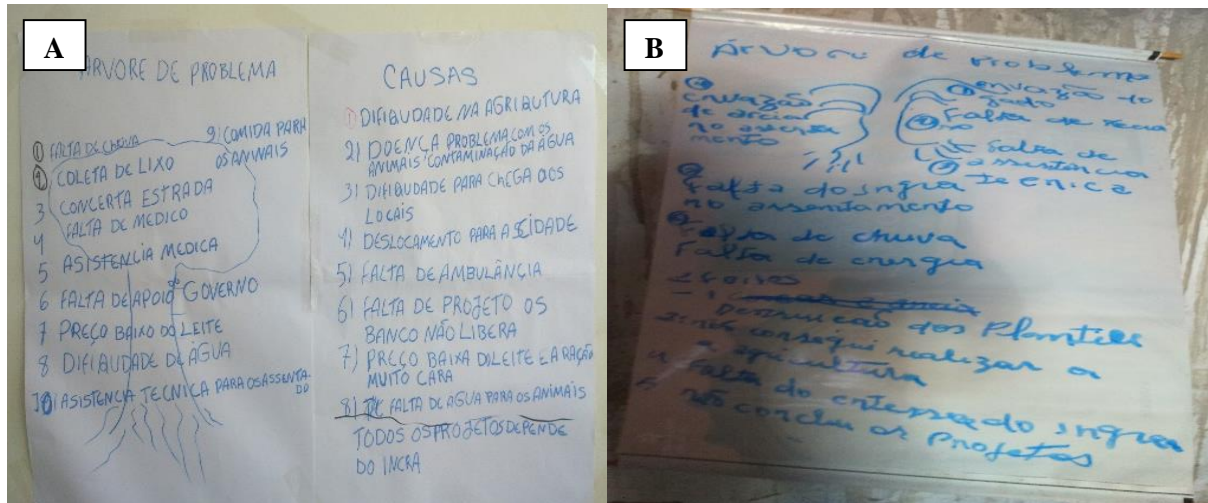 A
ARVORE DE PROBLEMA
① FALTA DE CHUVA
9) COMIDA PARA
OS ANIMAIS
COLETA DE LIXO
3 CONCERTA ESTRADA
4 FALTA DE MEDICO
5 ASISTENCIA MEDICA
6 FALTA DE APOIO GOVERNO
7 PREÇO BAIXO DO LEITE
8 DIFICUDADE DE ÁGUA
10) ASISTENCIA TECNICA PARA OS ASSENTA-
DO
CAUSAS
1) DIFICUDADE NA AGRICUTURA
2) DOENÇA PROBLEMA COM OS
ANIMAIS CONTAMINAÇÃO DA ÁGUA
3) DIFICUDADE PARA CHEGA AOS
LOCAIS
4) DESLOCAMENTO PARA A CIDADE
5) FALTA DE AMBULÂNCIA
6) FALTA DE PROJETO OS
BANCO NÃO LIBERA
7) PREÇO BAIXA DI LEITE E A RAÇÃO
MUITO CARA
8) FALTA DE AGUA PARA OS ANIMAIS
TODOS OS PROJETOS DEPENDE
DO INCRA
B
Árvore de Problema
envazão do
gado
envazão
de areia
no assenta
mento
Falta de
no
Falta de
assistencia
tecnica
Falta do ingra
no assentamento
Falta de chuva
Falta de energia
Destruição dos Plantiles
2: não consegui realizar a
agricultura
Falta do enterese do ingra
não conclui os Projetos